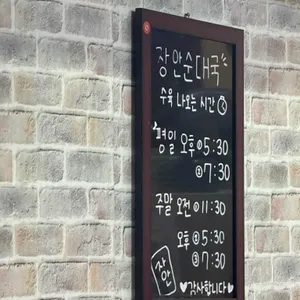 장안순대국
수육 나오는 시간
평일 오후 ①5:30
②7:30
주말 오전 ①11:30
오후 ②5:30
③7:30
장안
♥감사합니다♥